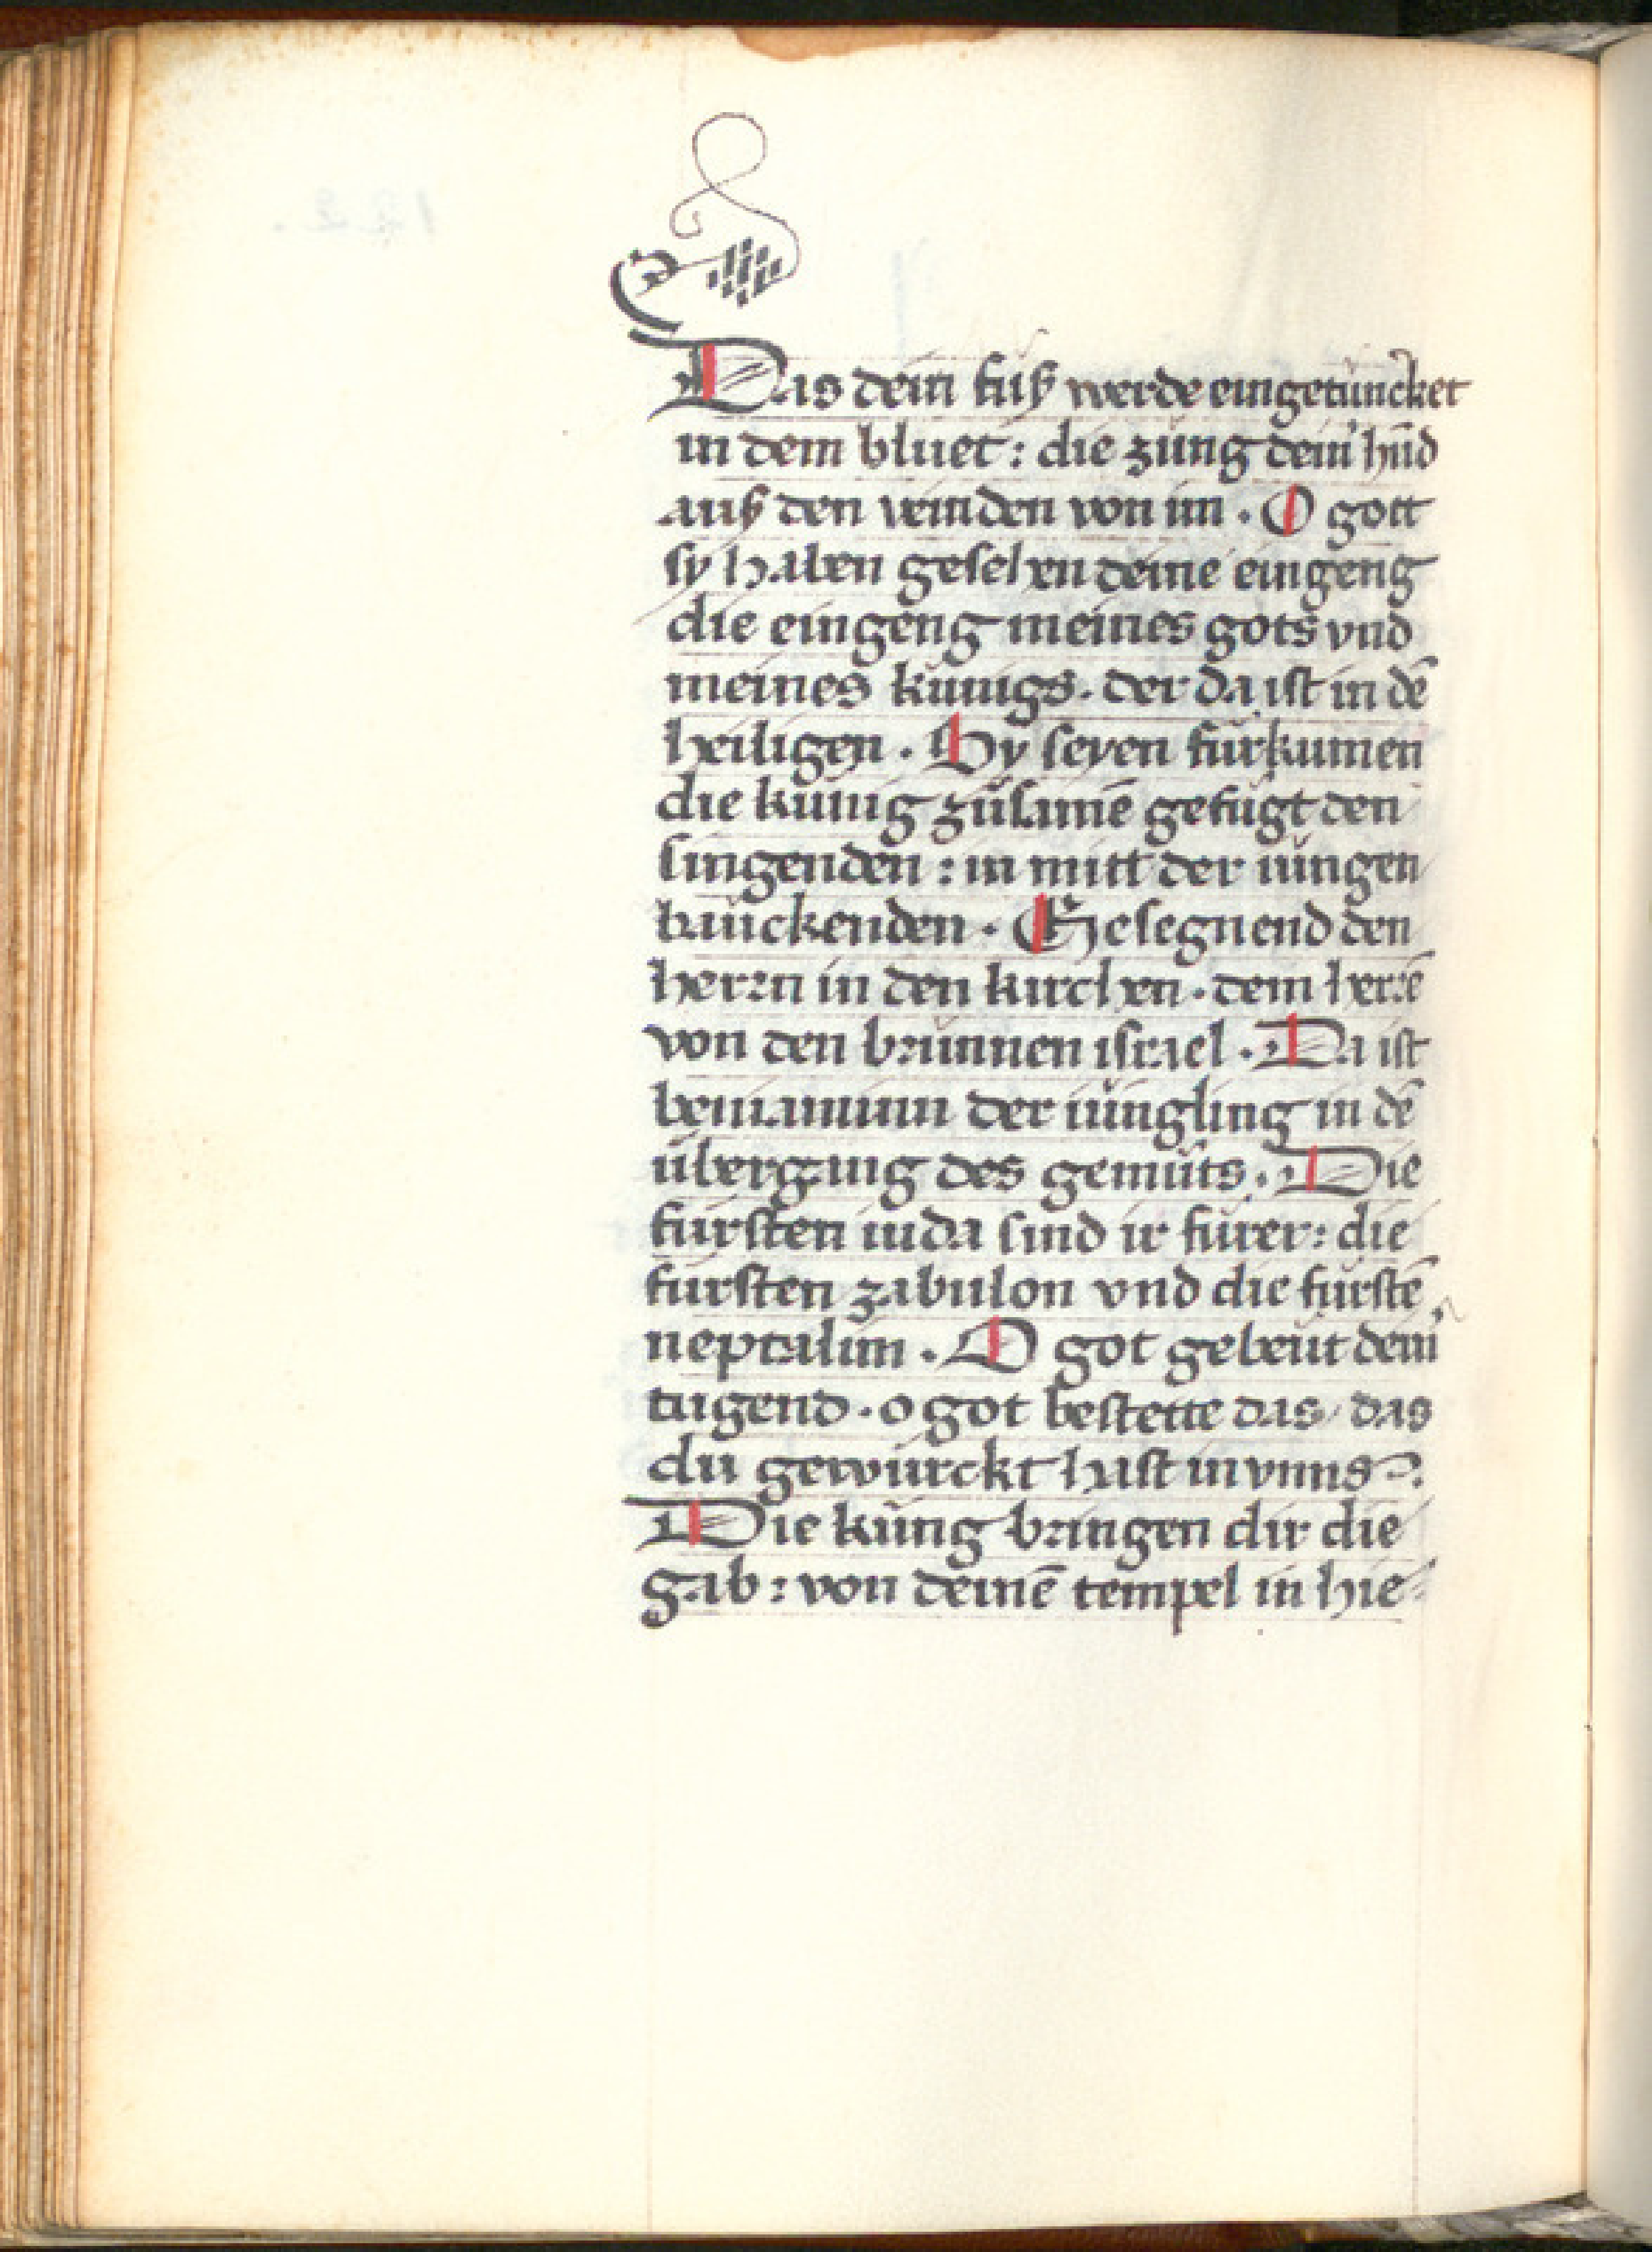 Das dein fuß werde eingetuncket
in dem bluet: die zŭng dein' hūd
auß den veinden von im · O gott
sy haben gesehen deine eingeng
die eingeng meines gots vnd
meines kŭnigs · der da ist in dē
heiligen · Sy seyen fŭrkumen
die kŭnig zŭsamē gefŭgt den
singenden: in mitt der iŭngen
bauckenden · Gesegnend den
herrn in den kirchen · dem herrē
von den brŭnnen israel · Da ist
beniaminn der iŭngling in dē
ŭbergang des gemŭts · Die
fŭrsten iuda sind ir fŭrer: die
fŭrsten zabulon vnd die fŭrstē
neptalim · O got gebeŭt dein'
tugend · o got bestette das / das
du gewŭrckt hast in vnns ·
Die kŭnig bringen dir die
gab: von deinē tempel in hie-